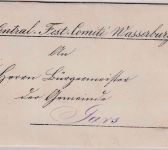 Central-Fest-Comité Wasserburg
An
Herrn Bürgermeister
der Gemeinde
Gars